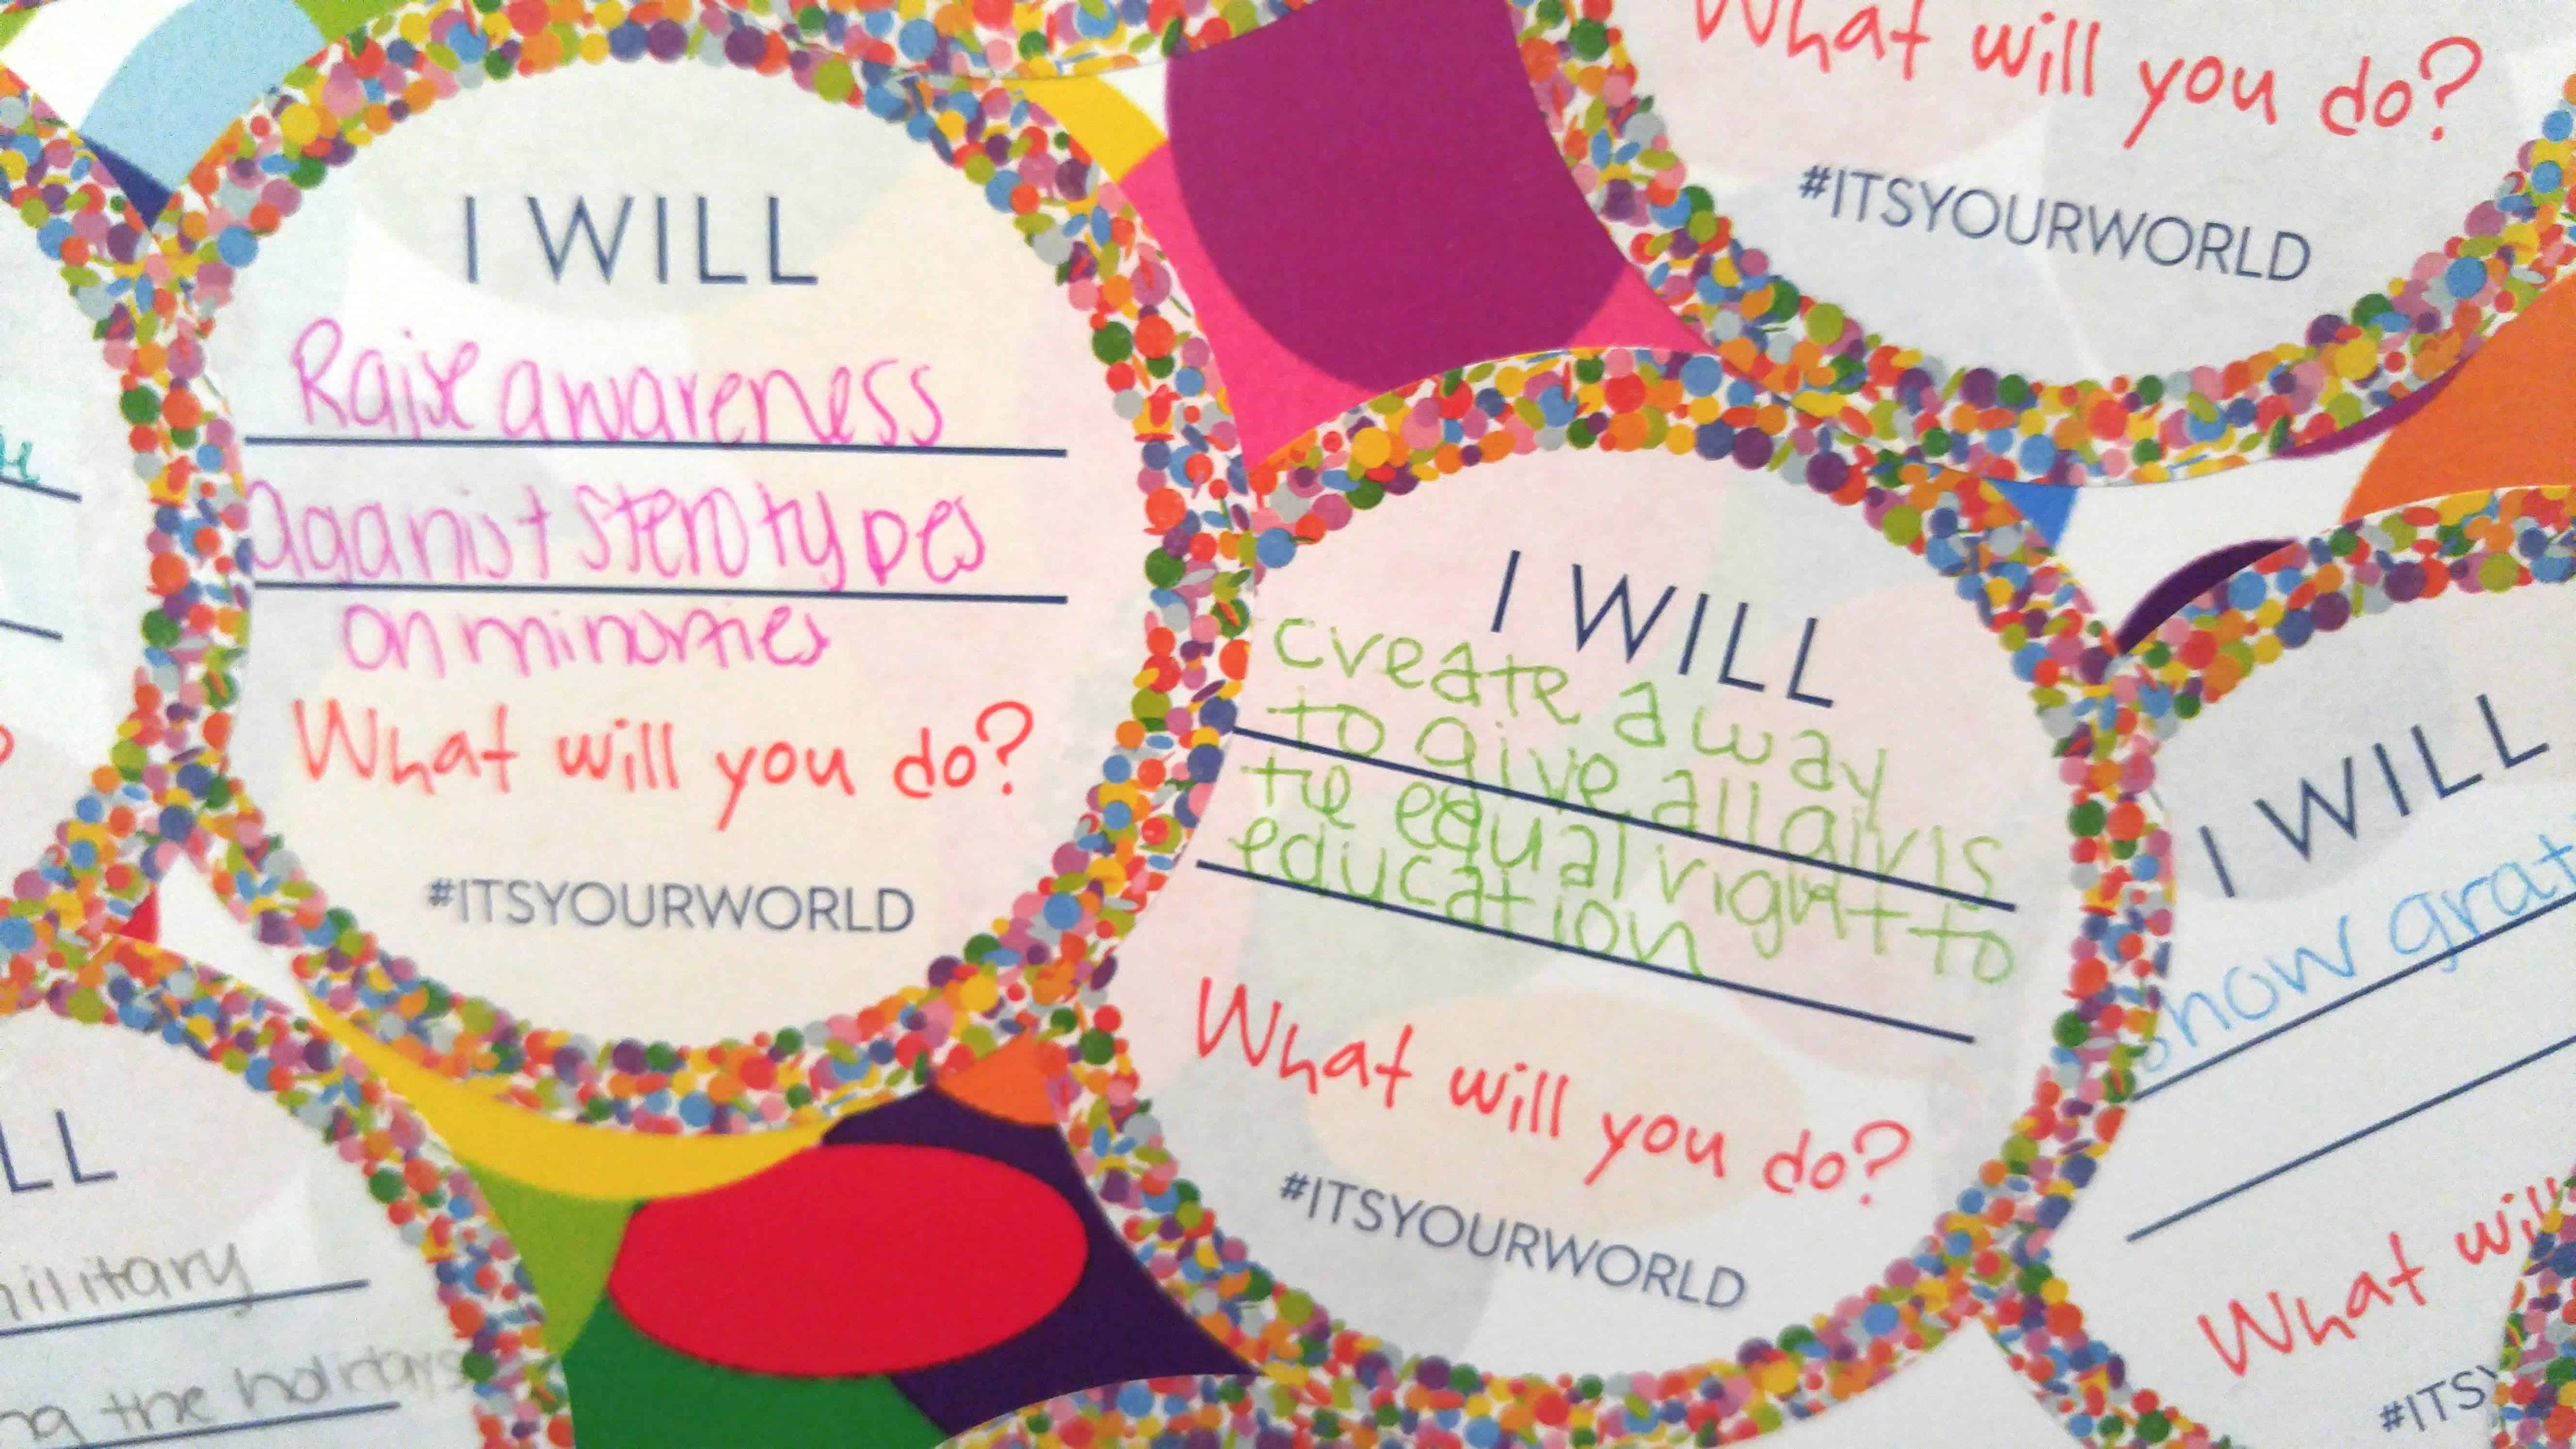 I WILL
Raise awareness
aganist sterotypes
on minorities
What will you do?
#ITSYOURWORLD
What will you do?
#ITSYOURWORLD
I WILL
create a way
to give all girls
the equal right to
education
What will you do?
#ITSYOURWORLD
I WILL
show grat
What will
#ITSY
LL
military
ng the holidays